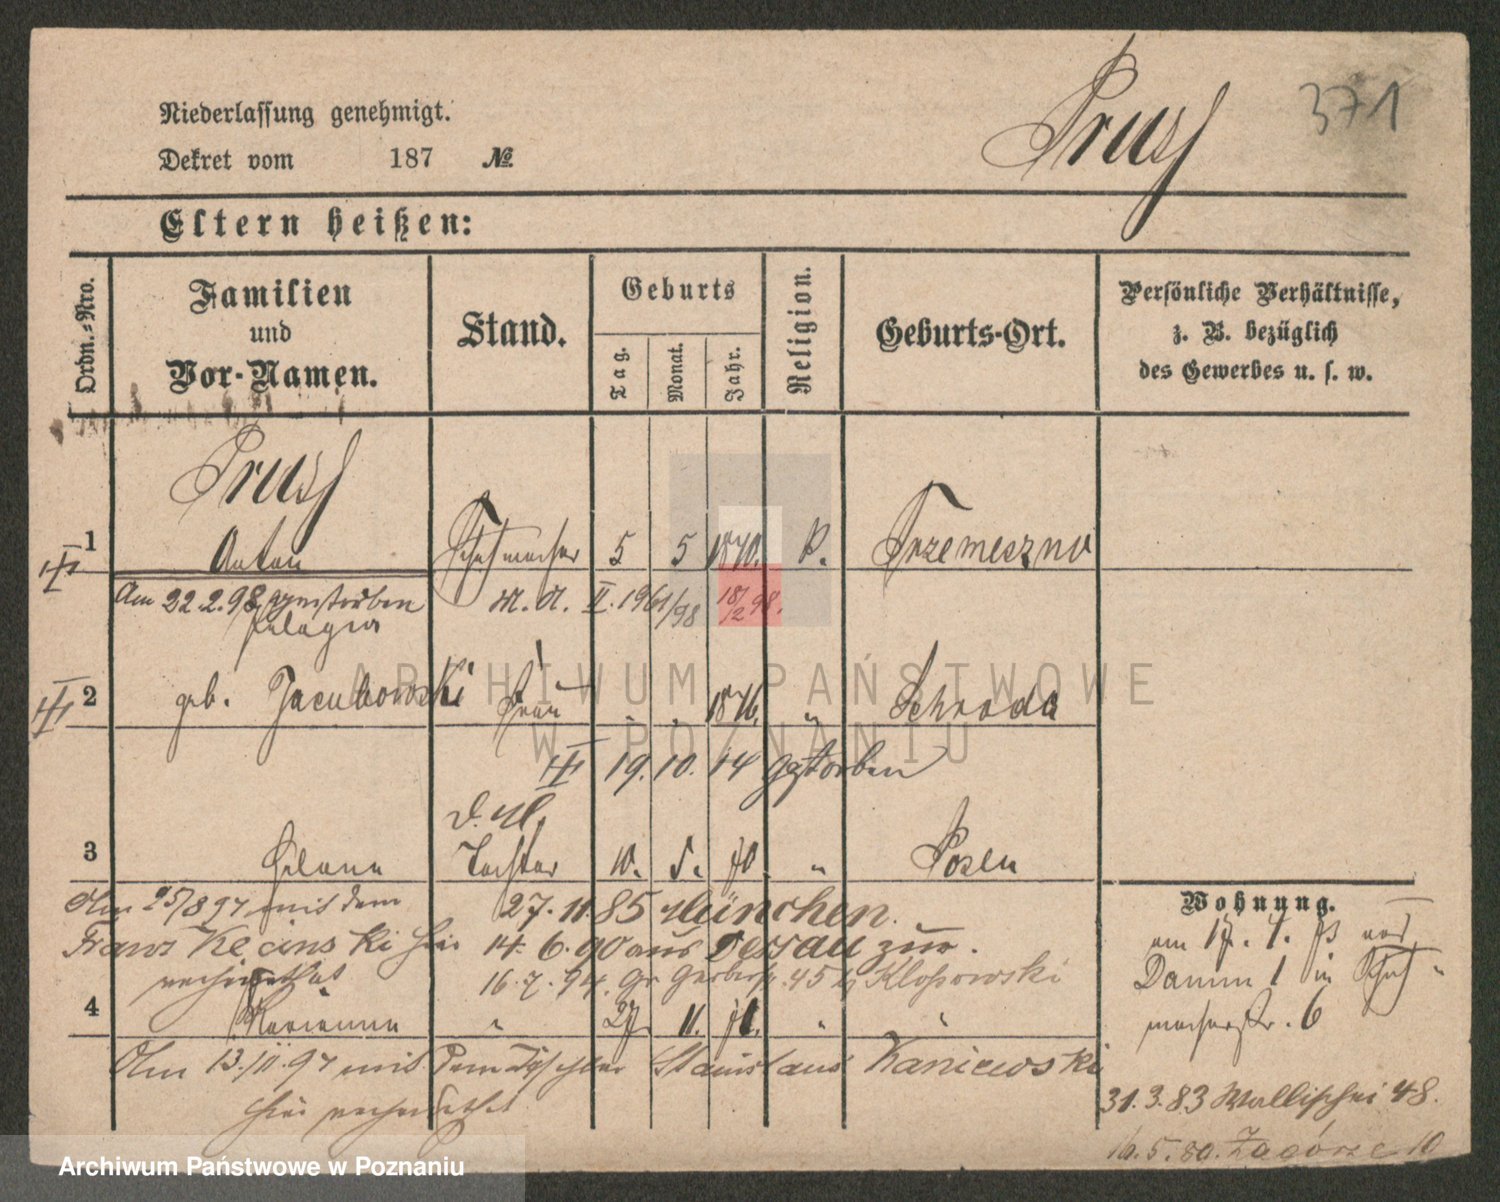 Niederlassung genehmigt.
371
Prusz
Dekret vom 187 №
Eltern heißen:
Ordn.-Nro.
Familien und Vor-Namen.
Stand.
Geburts
Tag.
Monat.
Jahr.
Religion.
Geburts-Ort.
Persönliche Verhältnisse, z. B. bezüglich des Gewerbes u. s. w.
Prusz
1 Anton Schuhmacher 5 5 1840. k. Trzemeszno
Am 22.2.98 gestorben M. A. II. 1961/98 18/2 98.
Pelagia
2 geb. Jacubowski Frau 1846. " Schroda
19. 10. 14 gestorben
3 Helene Tochter 10. 5. 70 " Posen
Wohnung.
Am 25/8 97 mit dem 27. 11. 85 München.
Franz Kecinski hier 14. 6. 90 aus Dessau zur.
verheirathet 16. 7. 94. Gr Gerberstr. 45 b/ Klopowski
am 17. 4.
Damm 1 in Schuh-
macherstr. 6
4 Marianna " 27. 11. 71. " "
Am 13./11. 97 mit dem Tischler Stanislaus Kaniewski
hier verheirathet
31. 3. 83 Wallischei 48.
16. 5. 80. Zagórze 10
ARCHIWUM PAŃSTWOWE
W POZNANIU
Archiwum Państwowe w Poznaniu